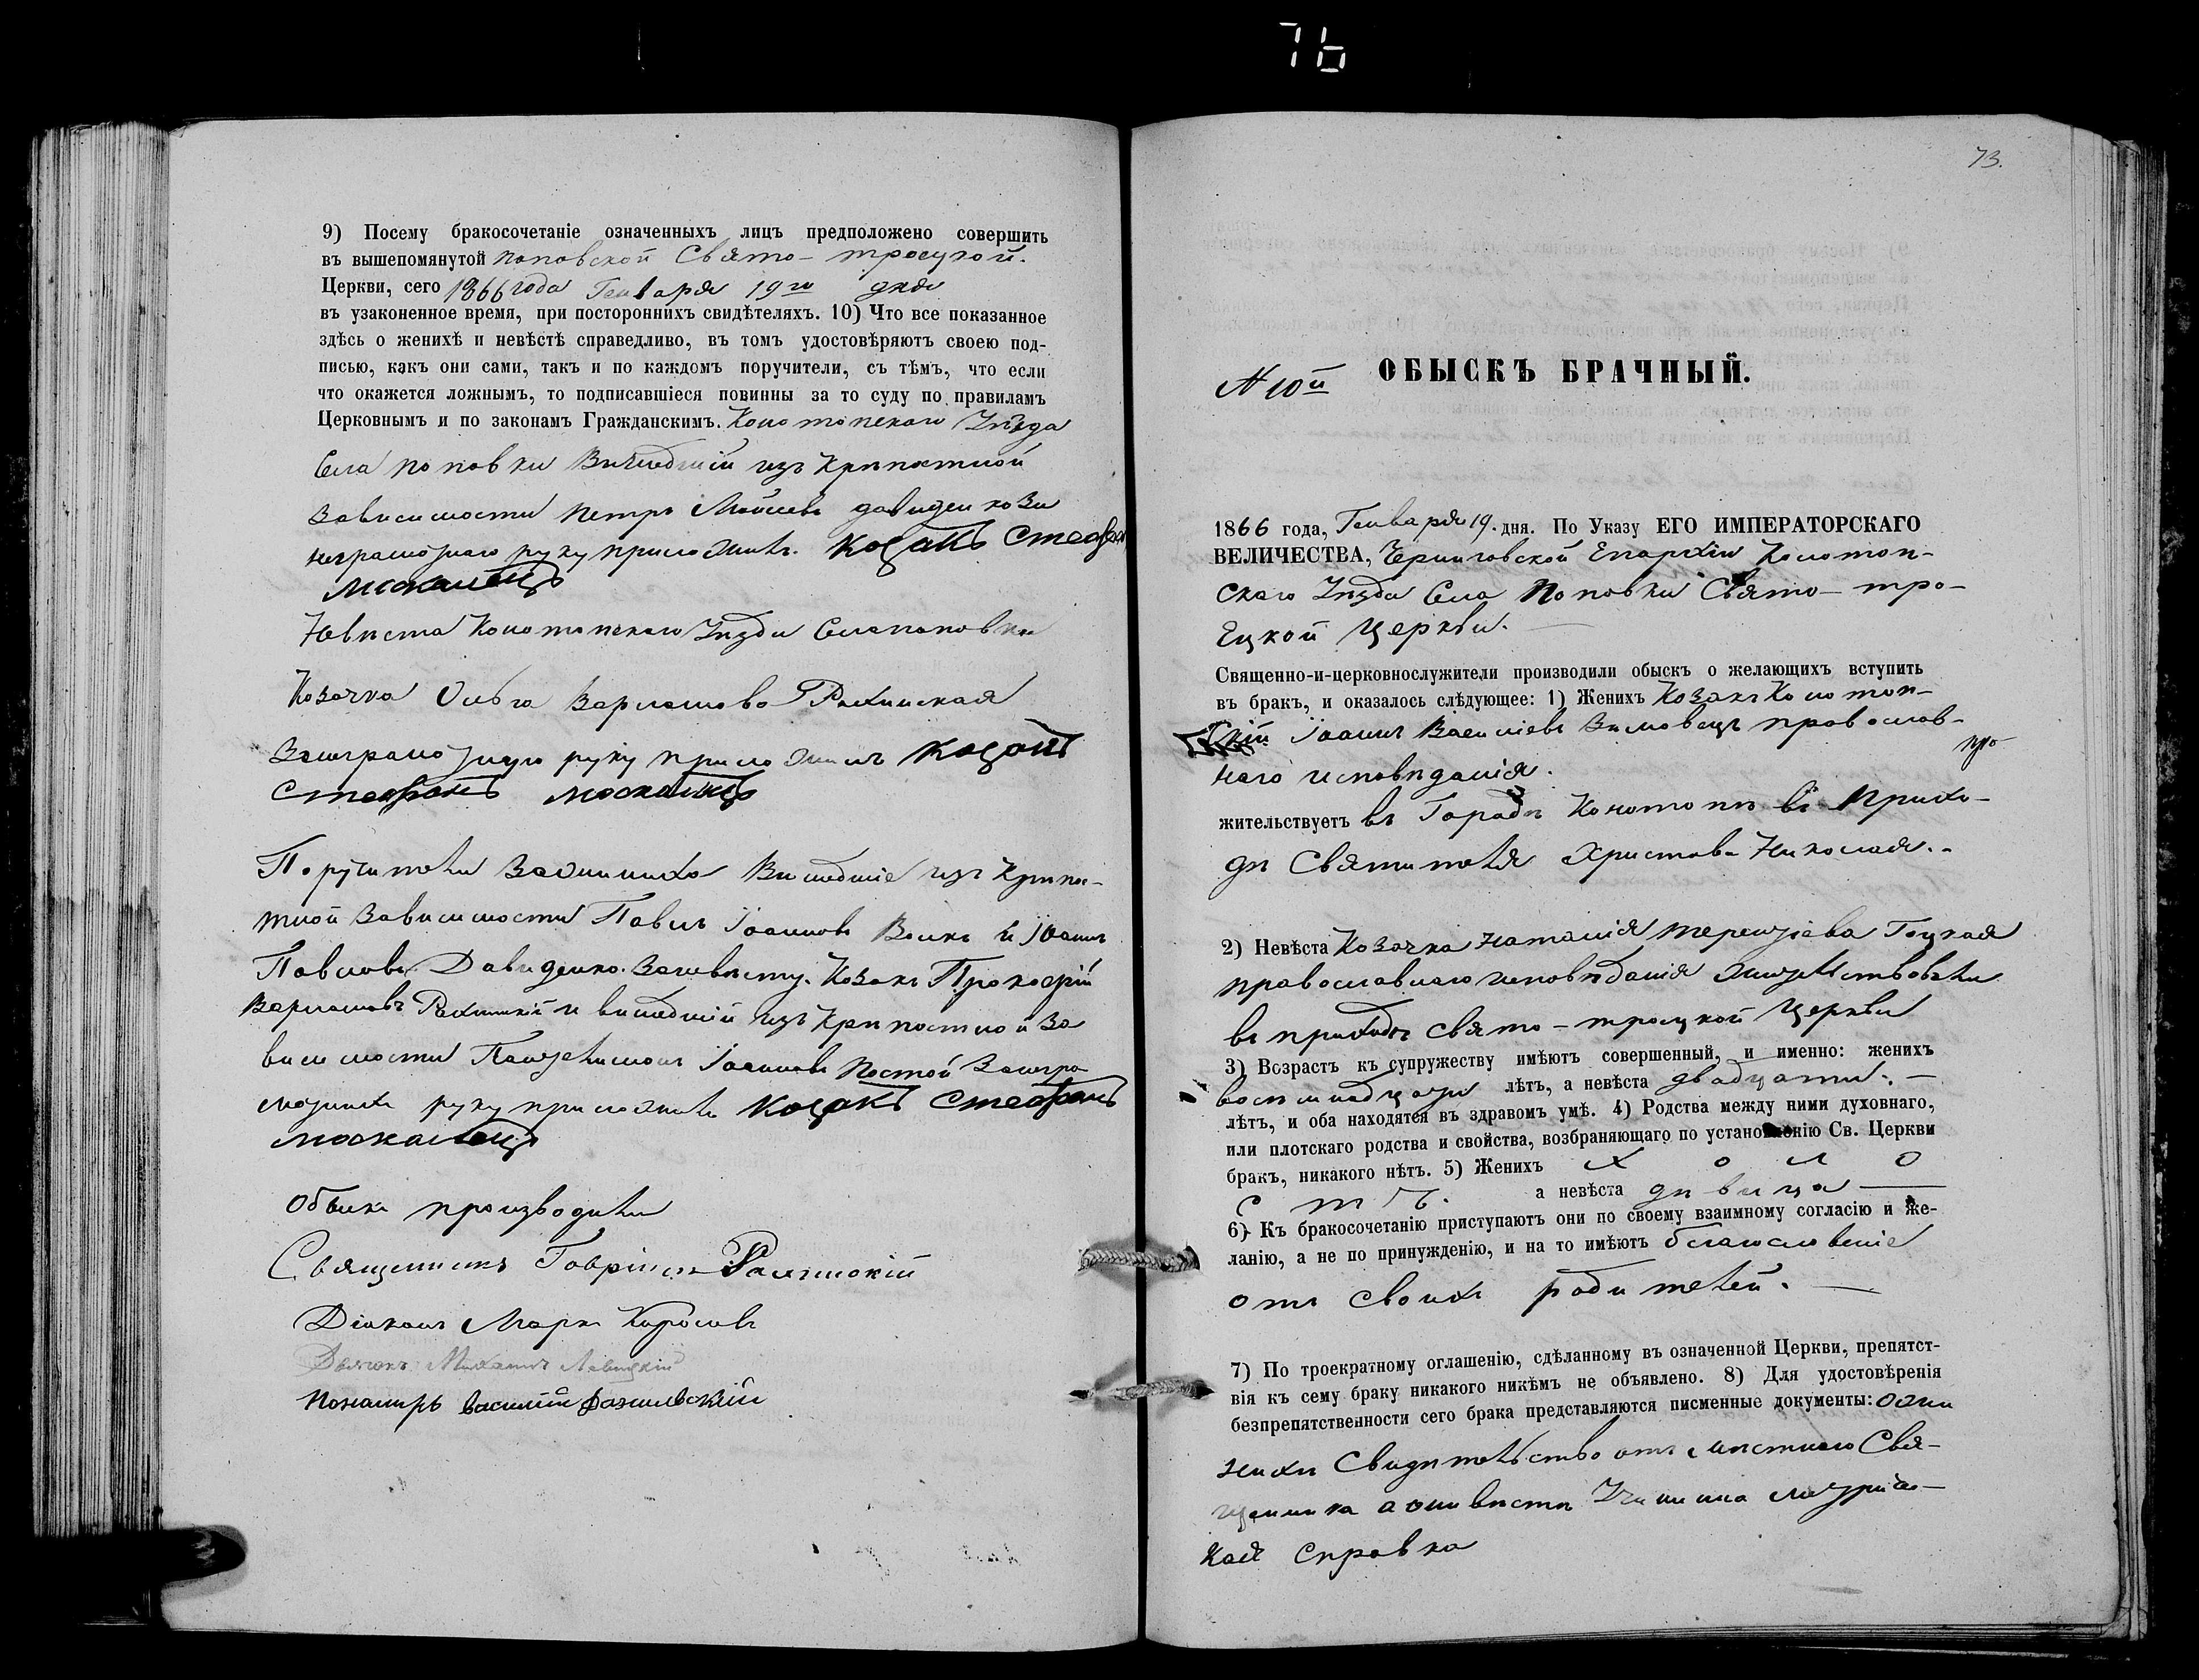 76
9) Посему бракосочетаніе означенныхъ лицъ предположено совершить
въ вышепомянутой поповской Свято-троецкой.
Церкви, сего 1866 года Генваря 19го дня
въ узаконенное время, при постороннихъ свидѣтеляхъ. 10) Что все показанное
здѣсь о женихѣ и невѣстѣ справедливо, въ томъ удостовѣряютъ своею под-
писью, какъ они сами, такъ и по каждомъ поручители, съ тѣмъ, что если
что окажется ложнымъ, то подписавшіеся повинны за то суду по правиламъ
Церковнымъ и по законамъ Гражданскимъ. Конотопскаго Уѣзда
Села поповки Вишедшій изъ Крѣпостной
Зависимости Петръ Моѵсеевъ давиденко За
неграмотнаго руку приложилъ. Козакъ Стефан
Москалецъ
Невѣста Конотопскаго Уѣзда Села поповки
Козачка Ольга Варламова Рахинская
За неграмотную руку приложилъ Козакъ
Стефанъ Москалецъ
Поручители За жениха Вишедшіе изъ Крѣпос-
тной Зависимости Павелъ Іоанновъ Волкъ и Іоаннъ
Павловъ Давиденко. За невѣсту. Козакъ Прокофій
Варламовъ Рахинскій и вишедшій изъ Крѣпостной За
висимости Пантелимонъ Іоанновъ Постой За негра
мотнихъ руку приложилъ Козакъ Стефанъ
Москалецъ
Обыскъ производили
Священникъ Гавріилъ
Діаконъ Маркъ
Дьячокъ Михаилъ Левицкій
Пономарь Василій
73.
N 10й ОБЫСКЪ БРАЧНЫЙ.
1866 года, Генваря 19. дня. По Указу ЕГО ИМПЕРАТОРСКАГО
ВЕЛИЧЕСТВА, Черниговской Епархіи Конотоп-
скаго Уѣзда Села Поповки Свято-тро-
ецкой Церкви.
Священно-и-церковнослужители производили обыскъ о желающихъ вступить
въ бракъ, и оказалось слѣдующее: 1) Женихъ Козакъ Конотоп-
скій Іоаннъ Василіевъ Зимовецъ православ-
наго исповѣданія. про
жительствуетъ въ Городѣ Конотопѣ въ Прихо-
дѣ Святителя Христова Николая.
2) Невѣста Козачка Наталія терентіева Гоцкая
православнаго исповѣданія жительствовали
въ приходѣ Свято-троецкой Церкви
3) Возрастъ къ супружеству имѣютъ совершенный, и именно: женихъ
восемнадцати лѣтъ, а невѣста двадцати.
лѣтъ, и оба находятся въ здравомъ умѣ. 4) Родства между ними духовнаго,
или плотскаго родства и свойства, возбраняющаго по установленію Св. Церкви
бракъ, никакого нѣтъ. 5) Женихъ холо
стъ. а невѣста дѣвица
6) Къ бракосочетанію приступаютъ они по своему взаимному согласію и же-
ланію, а не по принужденію, и на то имѣютъ благословеніе
отъ своихъ родителей.
7) По троекратному оглашенію, сдѣланному въ означенной Церкви, препятст-
вія къ сему браку никакого никѣмъ не объявлено. 8) Для удостовѣренія
безпрепятственности сего брака представляются писменные документы: о же
нихѣ Свидѣтельство отъ мѣстнаго Свя-
щенника а о невѣстѣ Учинина метричес-
кая справка